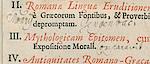 II. Romana Linguæ Eruditionem
è Græcorum Fontibus, & Proverbi
depromptam.
III. Mythologicam Epitomen, cum
Expositione Morali.
IV. Antiquitates Romano-Græca